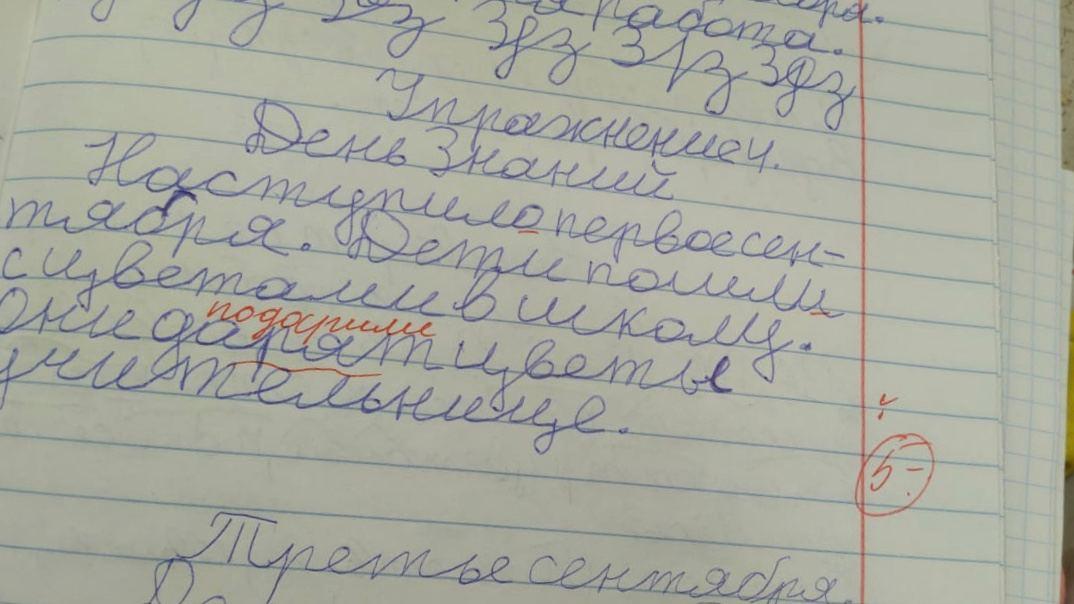 работа.
Упражнение 4.
День Знаний
Наступило первое сен-
тября. Дети пошли
с цветами в школу.
подарили
Они дарят цветы
учительнице.
5-
Третье сентября.